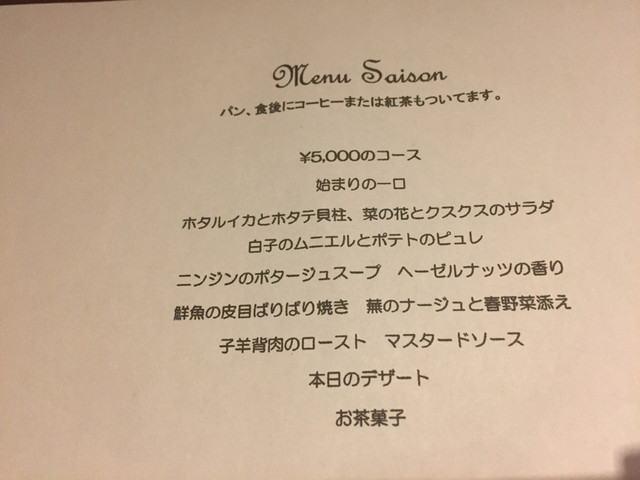 Menu Saison
パン、食後にコーヒーまたは紅茶もついてます。
¥5,000のコース
始まりの一口
ホタルイカとホタテ貝柱、菜の花とクスクスのサラダ
白子のムニエルとポテトのピュレ
ニンジンのポタージュスープ　ヘーゼルナッツの香り
鮮魚の皮目ぱりぱり焼き　蕪のナージュと春野菜添え
子羊背肉のロースト　マスタードソース
本日のデザート
お茶菓子